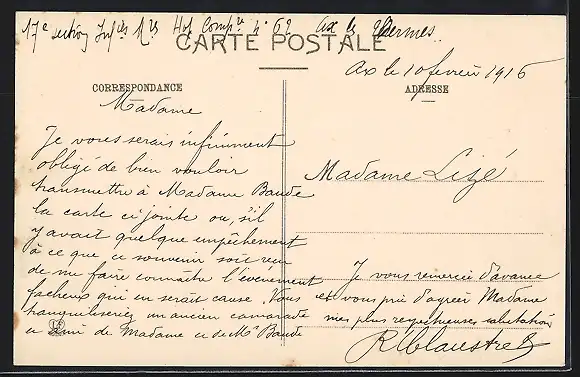 17e section Infrs Mres Hop Compre no 62 Ax les Thermes
CARTE POSTALE
Ax le 10 fevrier 1916
CORRESPONDANCE
ADRESSE
Madame
Je vous serais infiniment
obligé de bien vouloir
transmettre à Madame Baude
la carte ci jointe ou, s'il
y avait quelque empêchement
à ce que ce souvenir soit reçu
de me faire connaître l'événement
facheux qui en serait cause. Vous
tranquiliseriez un ancien camarade
et ami de Madame et de Mr Baude
Madame Lizé
Je vous remercie d'avance
et vous prie d'agréer Madame
mes plus respectueuses salutations
R Claustre